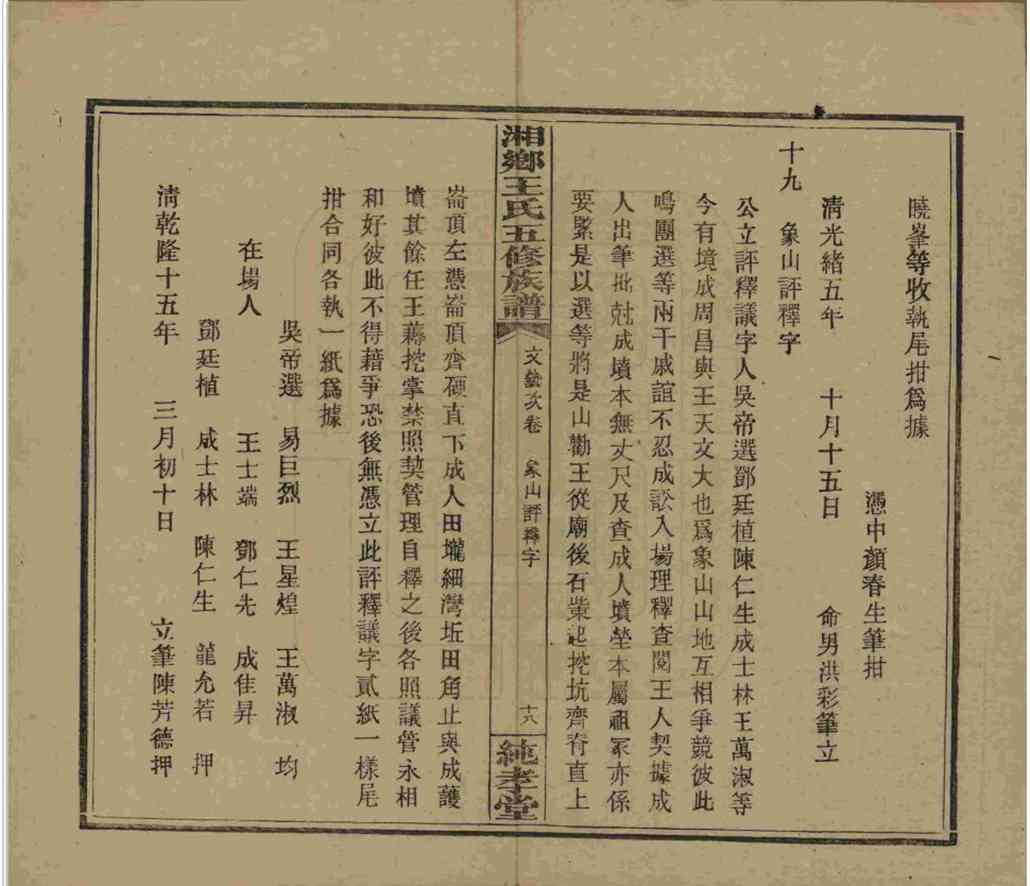 曉峯等收執尾拑爲據
憑中顏春生筆拑
清光緒五年 十月十五日 命男洪彩筆立
十九 象山評釋字
公立評釋議字人吳帝選鄧廷植陳仁生成士林王萬淑等
今有境成周昌與王天文大也爲象山山地互相爭競彼此
鳴團選等兩干戚誼不忍成訟入場理釋查閱王人契據成
人出筆批尅成墳本無丈尺及查成人墳塋本屬祖冢亦係
要緊是以選等將是山勸王從廟後石業起挖坑齊脊直上
湘鄉王氏五修族譜 文藝次卷 象山評釋字 十八 純孝堂
崙頂左憑崙頂齊硬直下成人田壠細灣坵田角止與成護
墳其餘任王蓀挖掌禁照契管理自釋之後各照議管永相
和好彼此不得藉爭恐後無憑立此評釋議字貳紙一樣尾
拑合同各執一紙爲據
吳帝選 易巨烈 王星煌 王萬淑 均
在場人 王士端 鄧仁先 成佳昇
鄧廷植 成士林 陳仁生 龍允若 押
清乾隆十五年 三月初十日 立筆陳芳德押